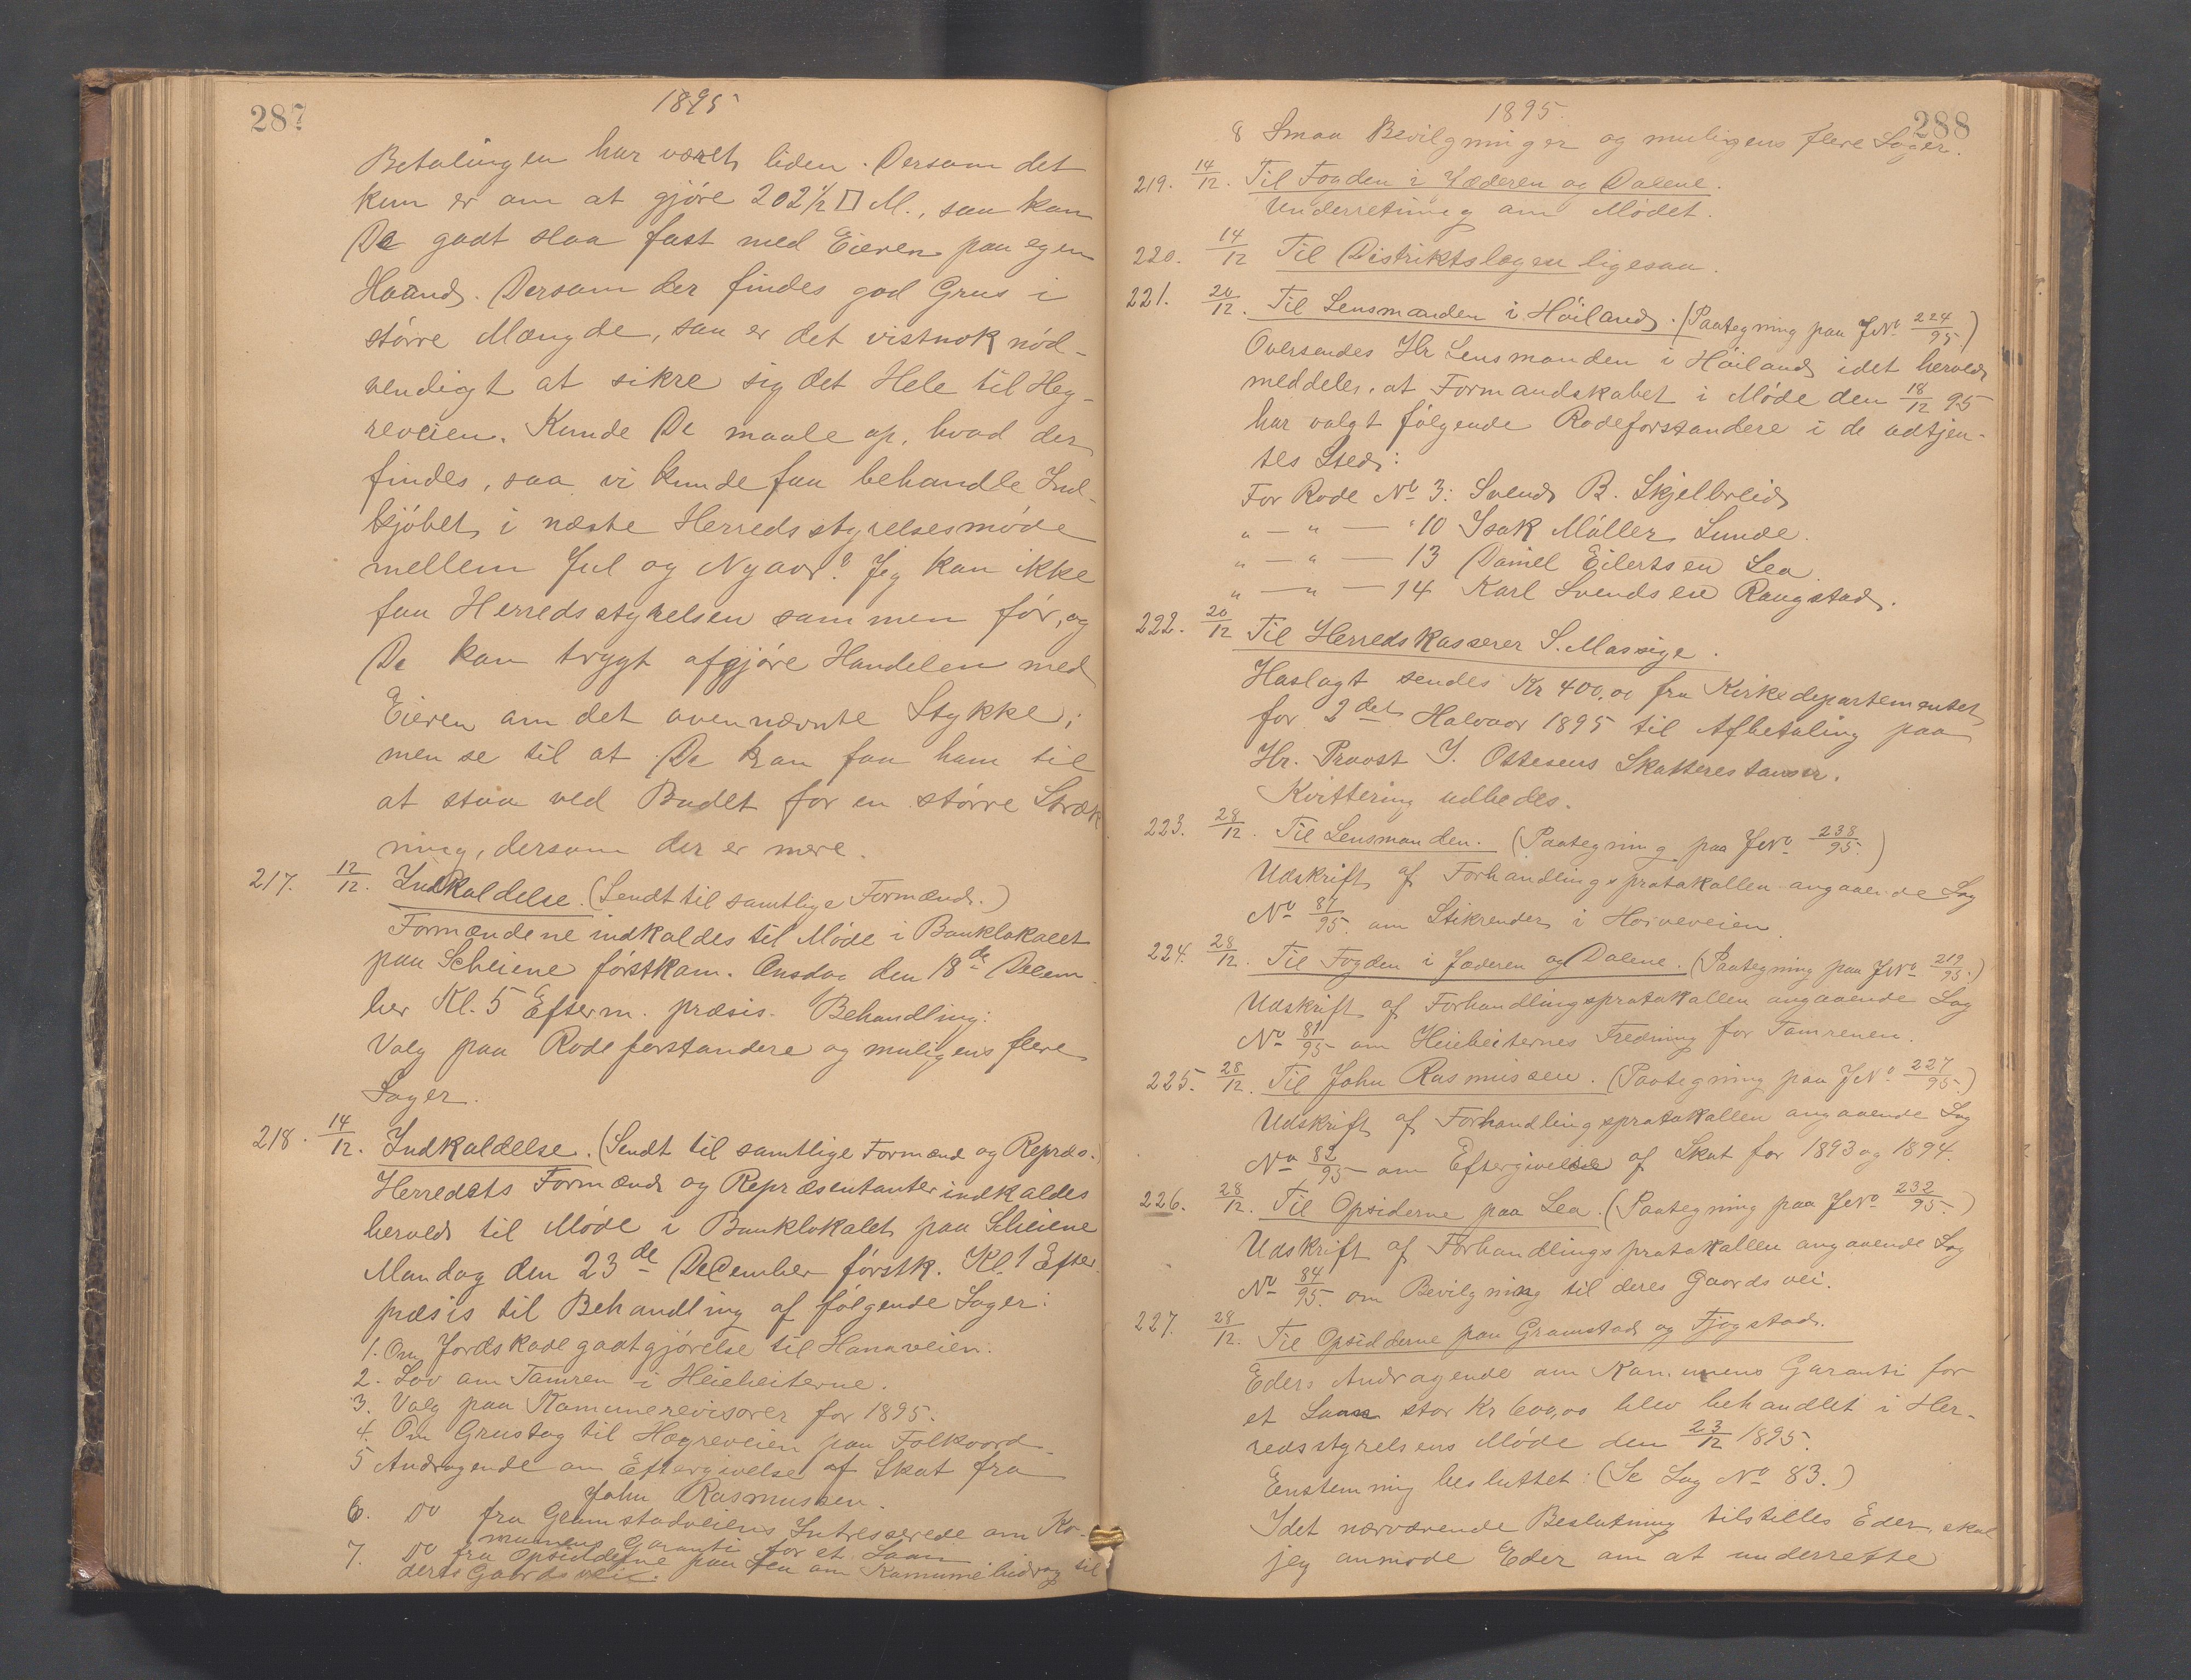 287
1895
Betalingen har været liden. Dersom det
kun er om at gjøre 202 1/2 □ M., saa kan
De godt slaa fast med Eieren paa egen
Haand. Dersom der findes god Grus i
større Mængde, saa er det vistnok nød-
vendigt at sikre sig det Hele til Heg-
reveien. Kunde De maale op, hvad der
findes, saa vi kunde faa behandle Ind-
kjøbet i næste Herredsstyrelsesmøde
mellem Jul og Nyaar? Jeg kan ikke
faa Herredsstyrelsen sammen før, og
De kan trygt afgjøre Handelen med
Eieren om det ovennævnte Stykke;
men se til at De kan faa ham til
at staa ved Budet for en større Stræk
ning, dersom der er mere.
217. 12/12. Indkaldelse. (Sendt til samtlige Formænd.)
Formændene indkaldes til Møde i Banklokalet
paa Scheiene førstkom. Onsdag den 18de Decem-
ber Kl. 5 Efterm. præsis. Behandling:
Valg paa Rodeforstandere og muligens flere
Sager.
218. 14/12. Indkaldelse. (Sendt til samtlige Formænd og Repræs.)
Herredets Formænd og Repræsentanter indkaldes
herved til Møde i Banklokalet paa Scheiene
Mandag den 23de December førstk. Kl. 1 Efter.
præsis til Behandling af følgende Sager:
1. Om Jordskadegodtgjørelse til Hanaveien.
2. Lov om Tamren i Heieheiterne.
3. Valg paa Komunerevisorer for 1895.
4. Om Grustag til Hogreveien paa Folkvord.
5 Andragende om Eftergivelse af Skat fra
John Rasmussen.
6. Do fra Gramstadveiens Intresserede om Ko-
munens Garanti for et Laan
7. Do fra Opsidderne paa Lea om Komunebidrag til
deres Gaardsvei.
288
1895.
8 Smaa Bevilgninger og muligens flere Sager.
219. 14/12. Til Fogden i Jæderen og Dalene.
Underretning om Mødet.
220. 14/12 Til Distriktslægen ligesaa.
221. 20/12. Til Lensmanden i Høiland. (Paategning paa JNo 224/95)
Oversendes Hr Lensmanden i Høiland idet herved
meddeles, at Formandskabet i Møde den 18/12 95
har valgt følgende Rodeforstandere i de udtjen-
tes Sted:
For Rode No 3: Svend B. Skjelbreid
" — " — " 10 Isak Møller Lunde.
" — " — 13 Daniel Eilertsen Lea.
" — " — 14 Karl Svendsen Raugstad.
222. 20/12 Til Herredskasserer S. Massige.
Hoslagt sendes Kr 400,00 fra Kirkedepartementet
for 2det Halvaar 1895 til Afbetaling paa
Hr. Provst J. Ottesens Skatterestanser.
Kvittering udbedes.
223. 28/12. Til Lensmanden. (Paategning paa JNo 238/95.)
Udskrift af Forhandlingsprotokollen angaaende Sag
No 87/95. om Stikrender i Hoiveveien.
224. 28/12. Til Fogden i Jæderen og Dalene. (Paategning paa JNo 219/95.)
Udskrift af Forhandlingsprotokollen angaaende Sag
No 81/95 om Heieheiternes Fredning for Tamrenen.
225. 28/12. Til John Rasmussen. (Paategning paa JNo 227/95.)
Udskrift af Forhandlingsprotokollen angaaende Sag
No 82/95 om Eftergivelse af Skat for 1893 og 1894.
226. 28/12. Til Opsiderne paa Lea. (Paategning paa JNo 232/95.)
Udskrift af Forhandlingsprotokollen angaaende Sag
No 84/95. om Bevilgning til deres Gaardsvei.
227. 28/12. Til Opsidderne paa Gramstad og Fjogstad.
Eders Andragende om Komunens Garanti for
et Laan stor Kr 600,00 blev behandlet i Her-
redsstyrelsens Møde den 23/12 1895.
Enstemmig besluttet: (Se Sag No 83.)
Idet nærværende Beslutning tilstilles Eder, skal
jeg anmode Eder om at underrette